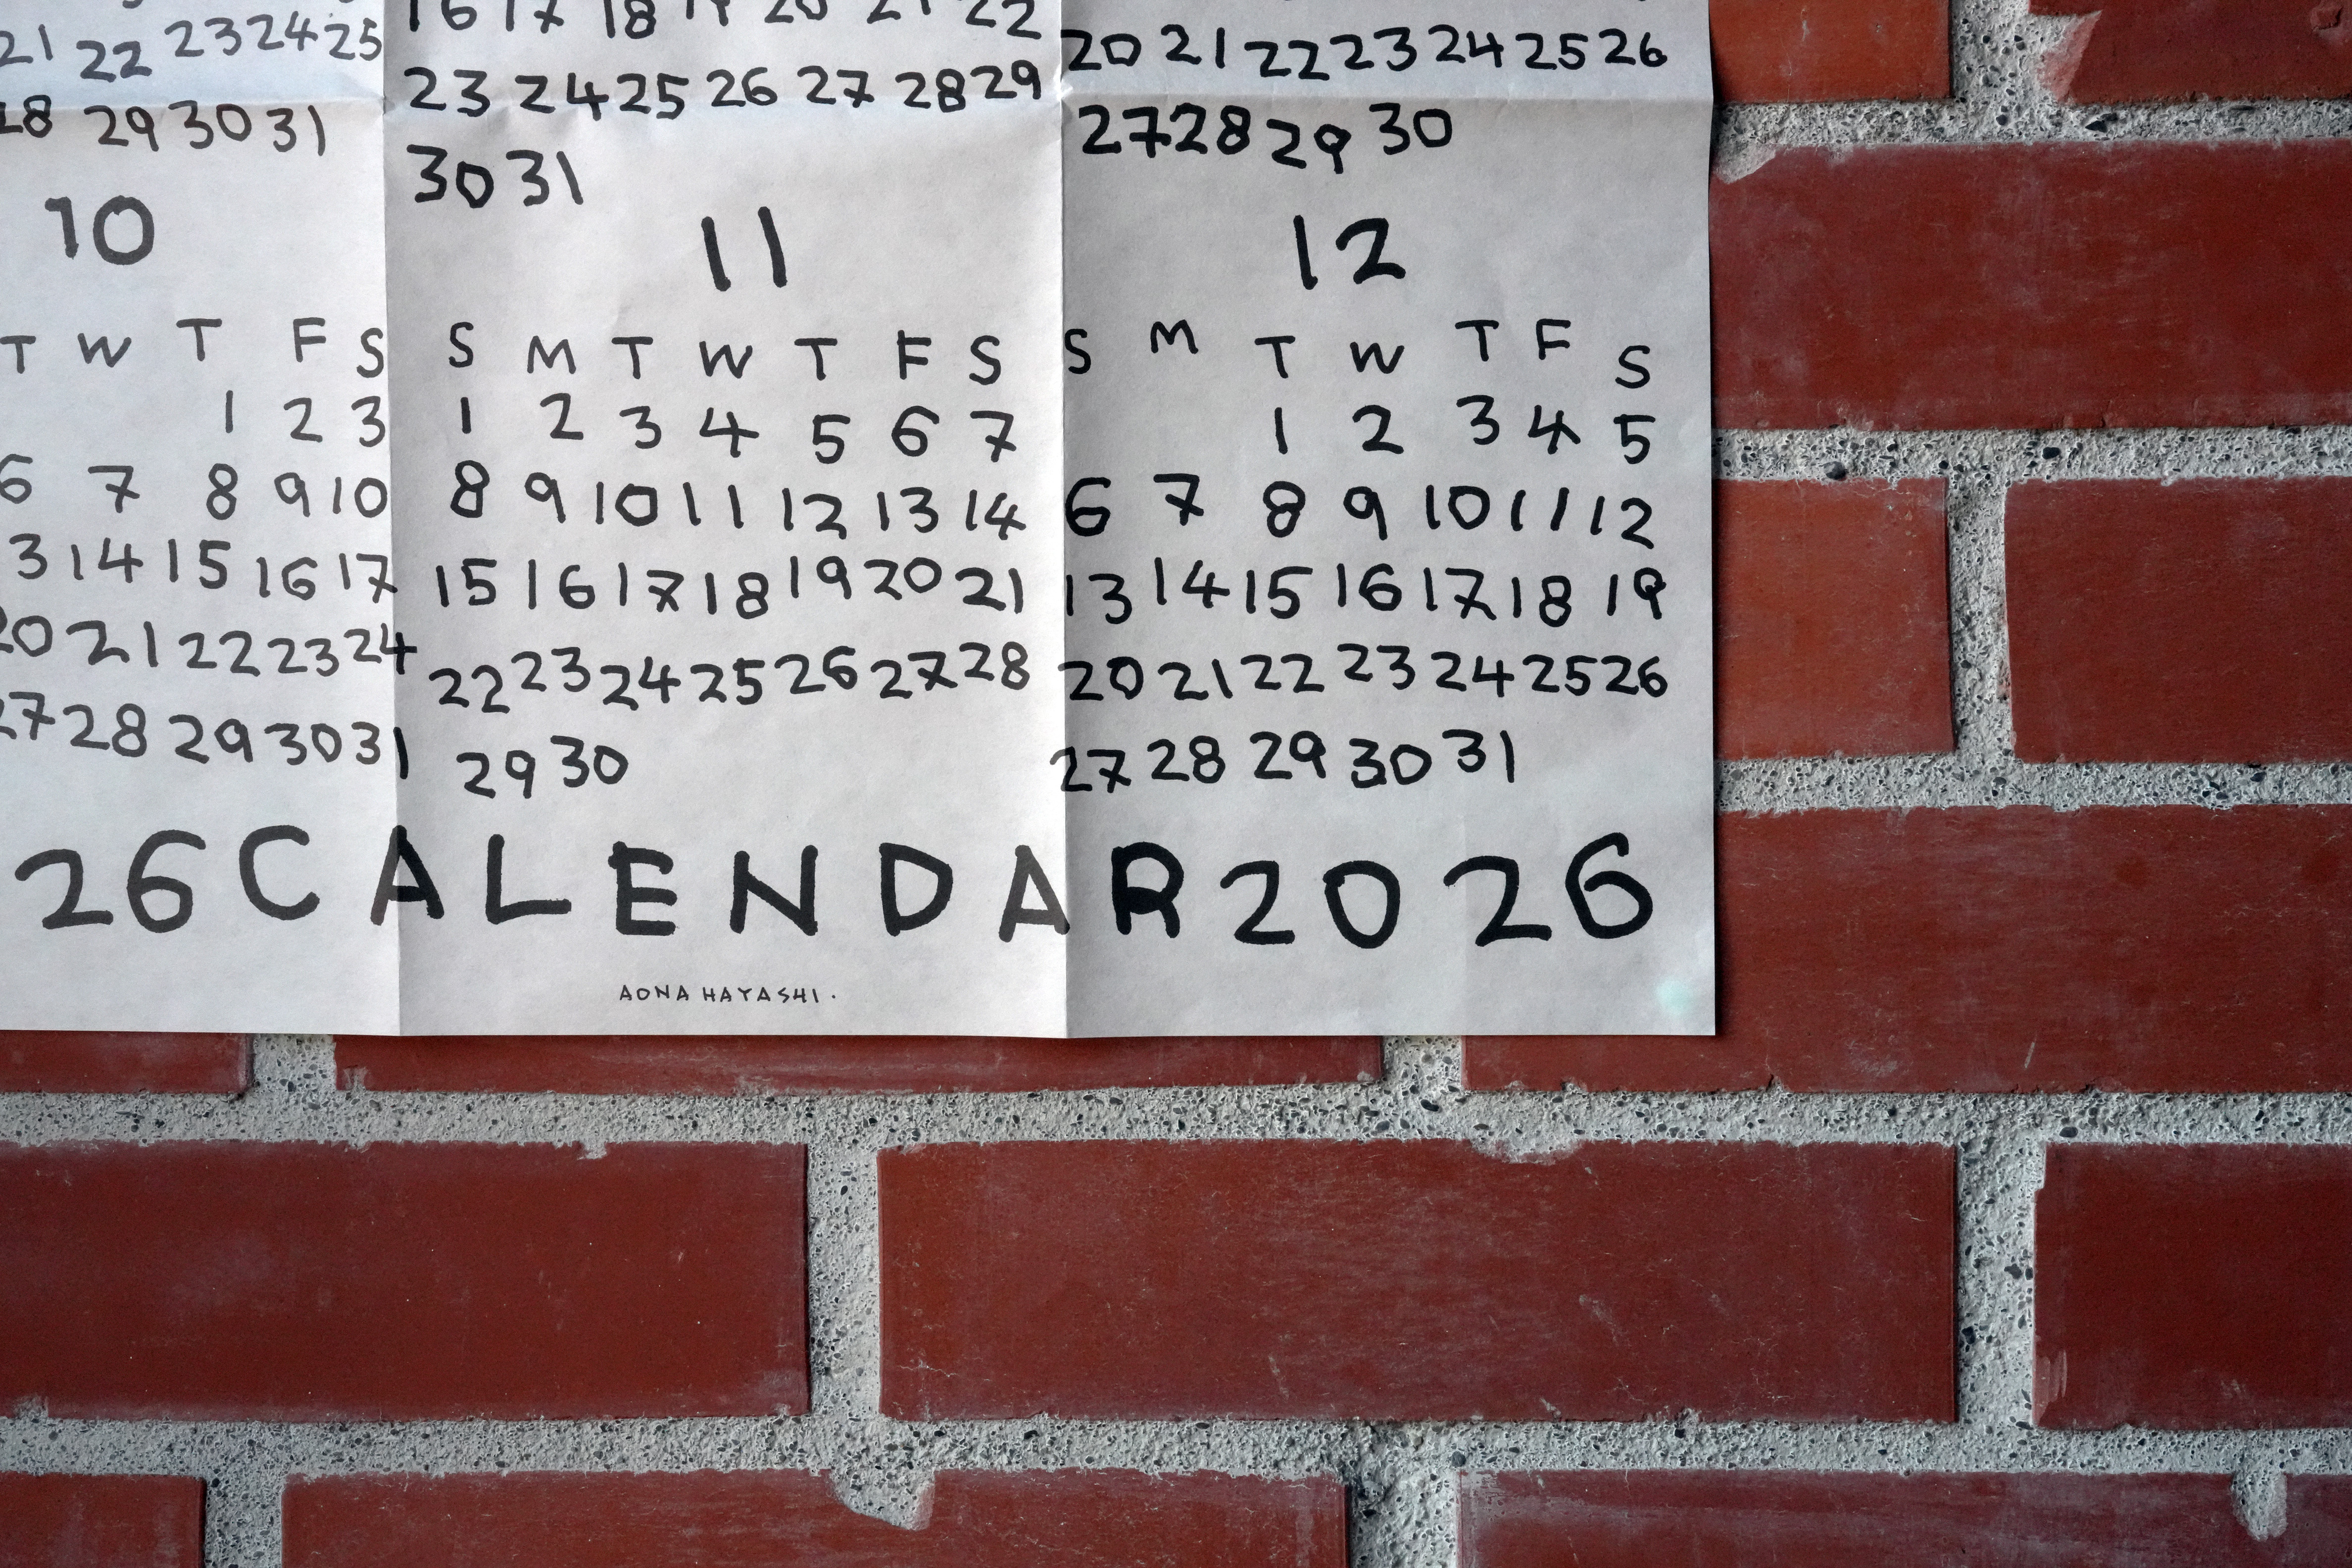 16 17 18 19 20 21 22
21 22 23 24 25
23 24 25 26 27 28 29
20 21 22 23 24 25 26
28 29 30 31
30 31
27 28 29 30
10
T W T F S
1 2 3
6 7 8 9 10
13 14 15 16 17
20 21 22 23 24
27 28 29 30 31
11
S M T W T F S
1 2 3 4 5 6 7
8 9 10 11 12 13 14
15 16 17 18 19 20 21
22 23 24 25 26 27 28
29 30
12
S M T W T F S
1 2 3 4 5
6 7 8 9 10 11 12
13 14 15 16 17 18 19
20 21 22 23 24 25 26
27 28 29 30 31
26 CALENDAR 2026
AONA HAYASHI.